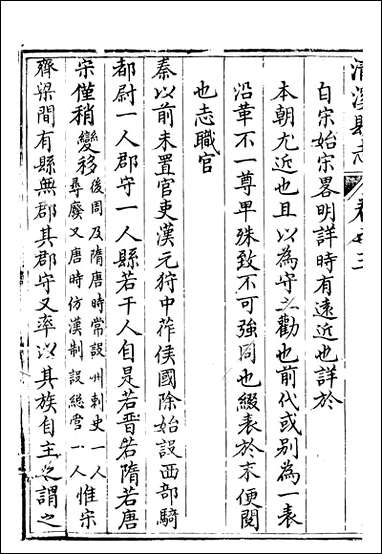 清溪縣志 卷之三
自宋始宋畧明詳時有遠近也詳於
本朝尤近也且以為守之勸也前代或別為一表
沿革不一尊卑殊致不可強同也綴表於末便閱
也志職官
秦以前未置官吏漢元狩中莋侯國除始設西部騎
都尉一人郡守一人縣若干人自是若晉若隋若唐
宋僅稍變移後周及隋唐時常設州刺史一人尋廢又唐時仿漢制設總管一人惟宋
齊梁間有縣無郡其郡守又率以其族自主之謂之